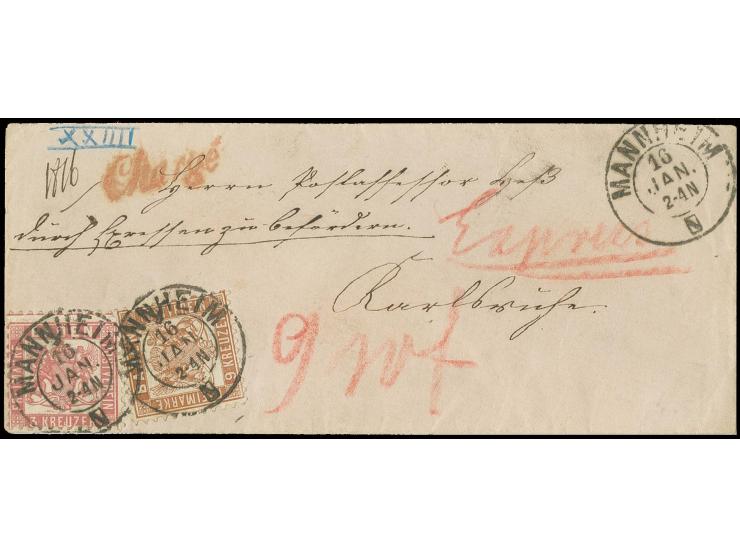 XXIIII
1816
Chargé
Herrn Postassessor Heß
durch Expressen zu befördern.
Expres
Karlsruhe.
9 xr f
MANNHEIM
16
JAN.
2-4N
MANNHEIM
16
JAN.
2-4N
3 KREUZER
MANNHEIM
16
JAN.
2-4N
9 KREUZER
FREIMARKE